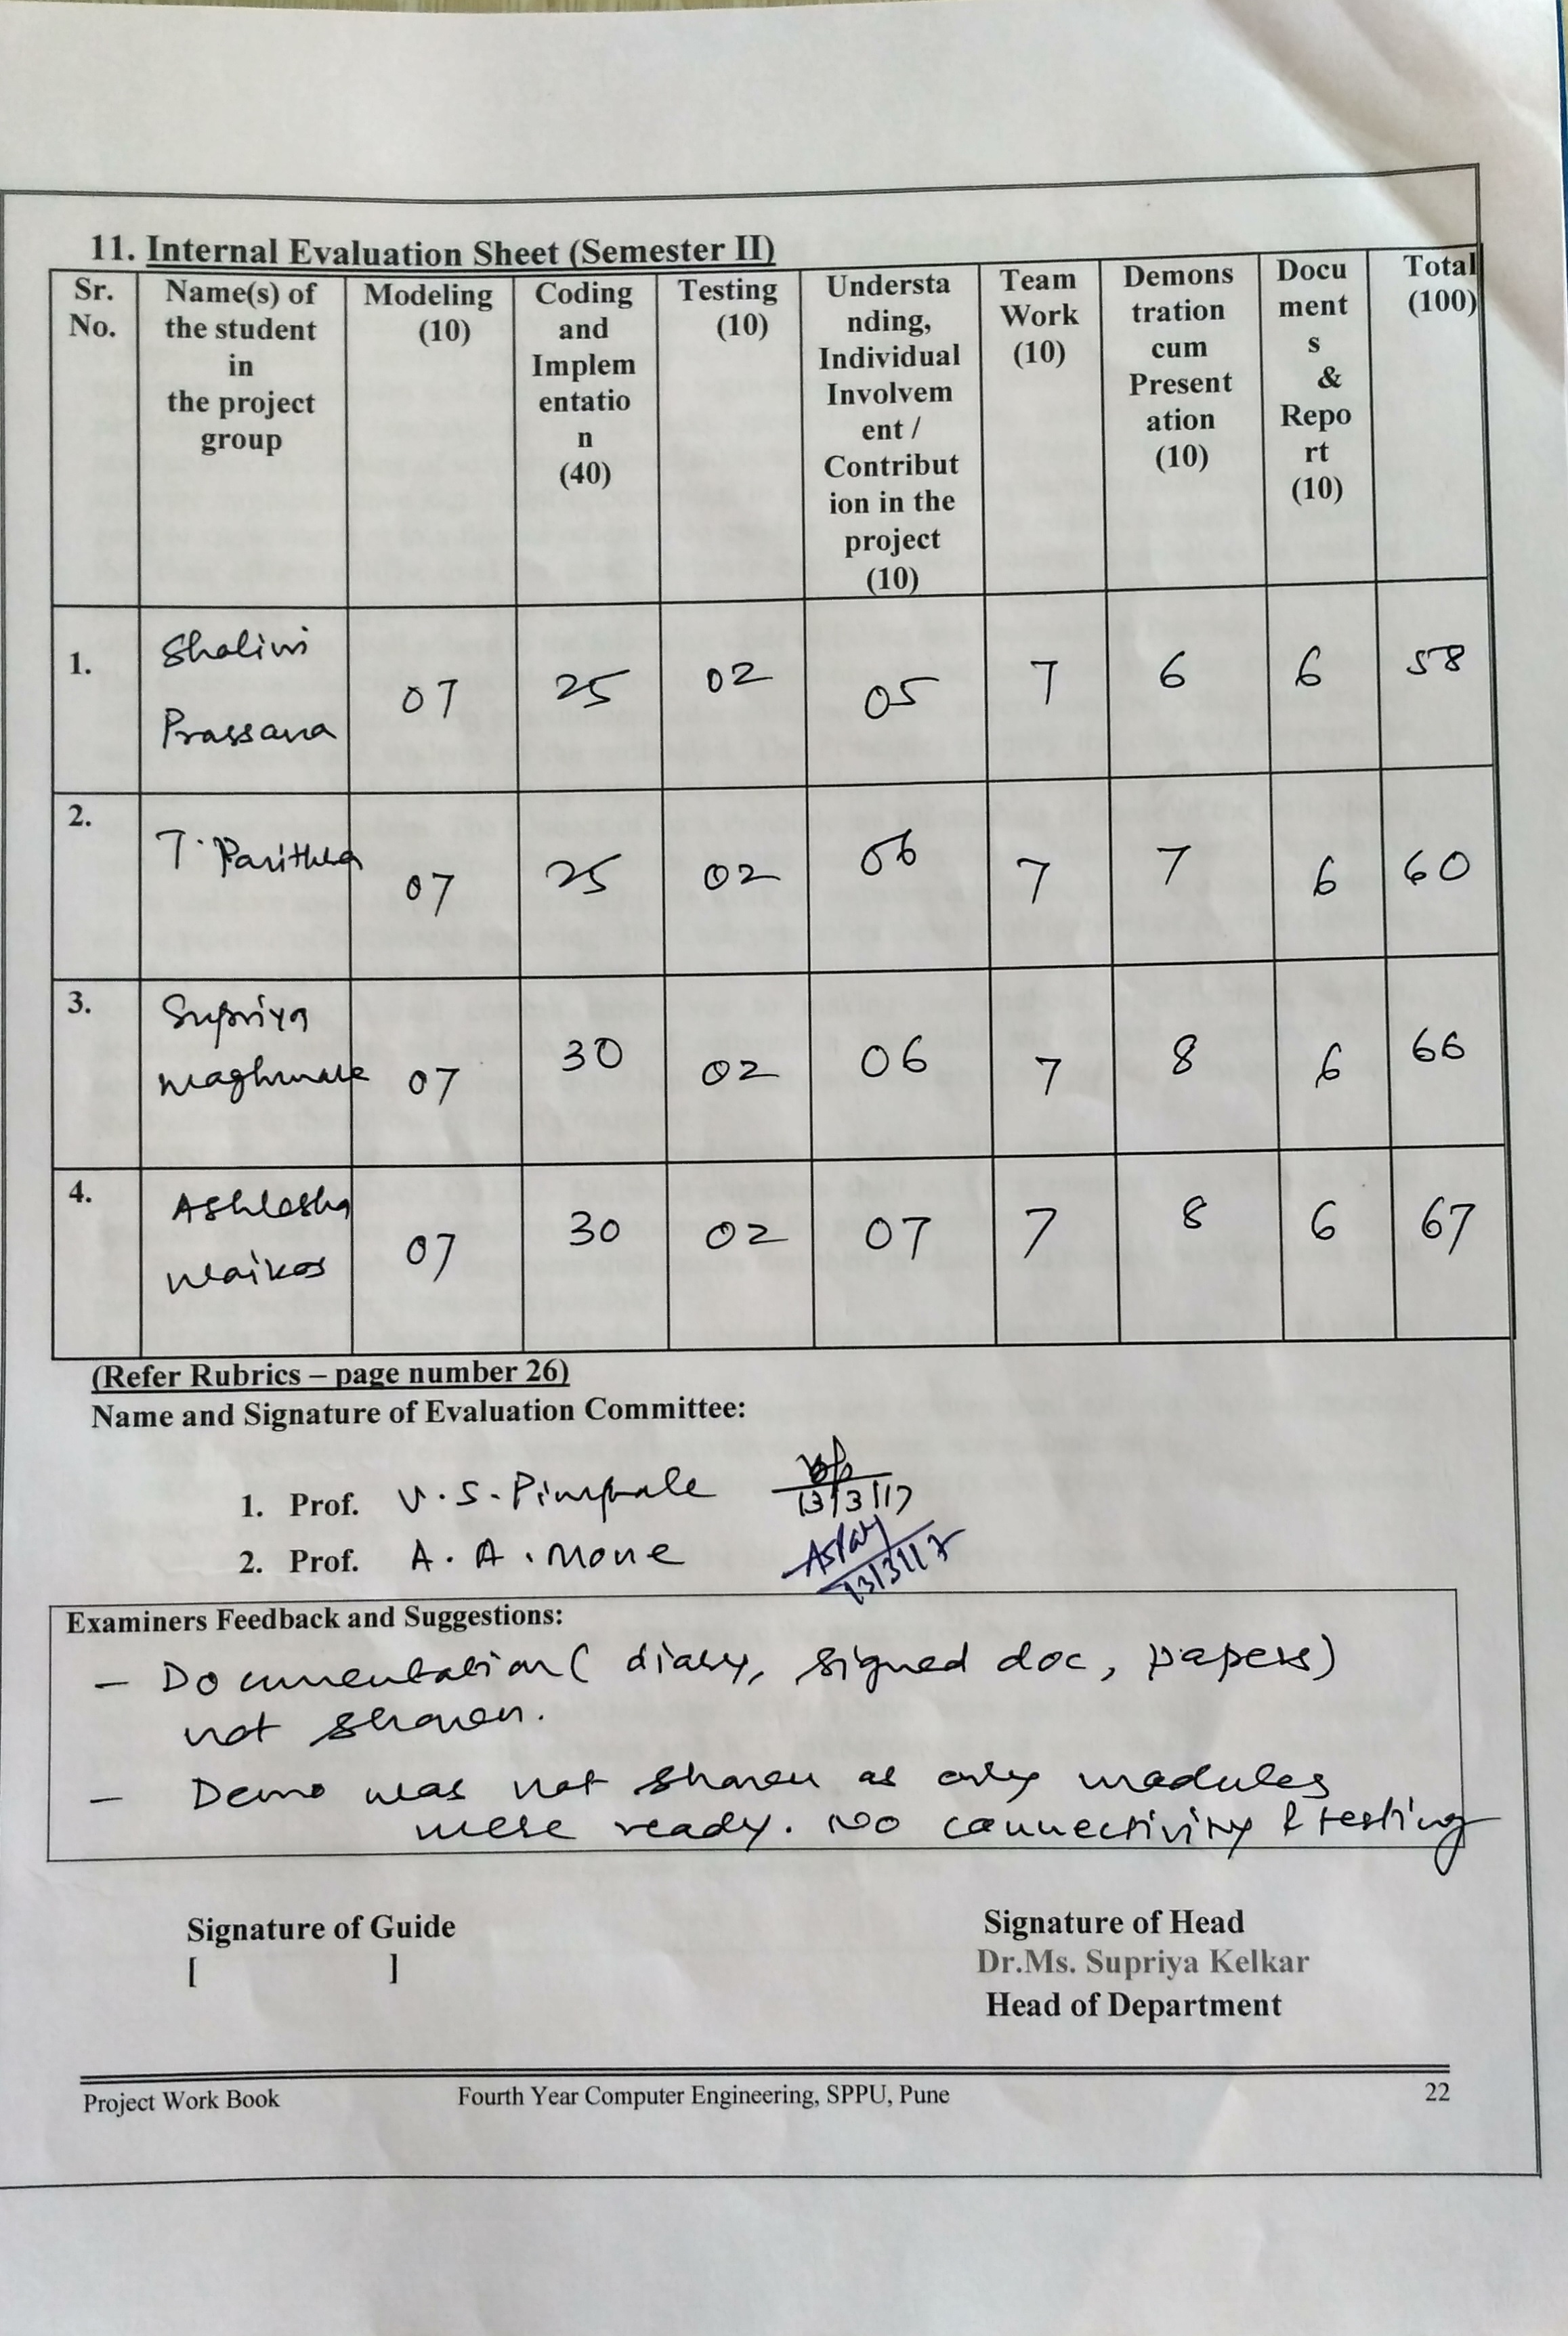 11. Internal Evaluation Sheet (Semester II)
Sr. No. Name(s) of the student in the project group Modeling (10) Coding and Implem entatio n (40) Testing (10) Understa nding, Individual Involvem ent / Contribut ion in the project (10) Team Work (10) Demons tration cum Present ation (10) Docu ment s & Repo rt (10) Total (100)
1. Shalini Prassana 07 25 02 05 7 6 6 58
2. T. Parithea 07 25 02 06 7 7 6 60
3. Supriya 07 30 02 06 7 8 6 66
4. Ashlesha 07 30 02 07 7 8 6 67
(Refer Rubrics – page number 26)
Name and Signature of Evaluation Committee:
1. Prof. V. S. Pimphale 13/3/17
2. Prof. A. A. Mone 13/3/17
Examiners Feedback and Suggestions:
– Documentation ( diary, signed doc, papers)
not shown.
– Demo was not shown as only modules
were ready. No connectivity & testing
Signature of Guide Signature of Head
[ ] Dr.Ms. Supriya Kelkar
Head of Department
Project Work Book Fourth Year Computer Engineering, SPPU, Pune 22